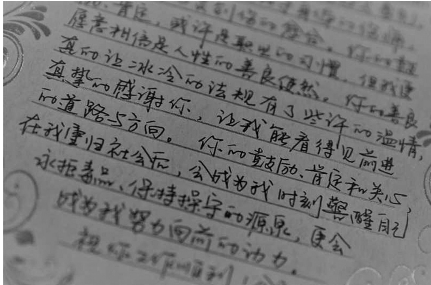 肯定，或许是职业的习惯，但我还
愿意相信是人性的善良使然。你的善良
真的让冰冷的法规有了些许的温情，
真挚的感谢你，让我能看得见前进
的道路与方向。你的鼓励、肯定和关心，
在我重归社会后，会成为我时刻警醒自己
永拒毒品、保持操守的源泉，更会
成为我努力向前的动力。
祝你工作顺利